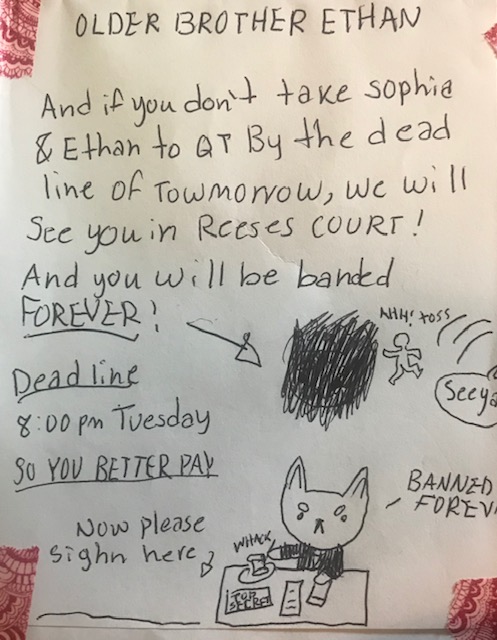 OLDER BROTHER ETHAN
And if you don't take sophia
& Ethan to QT By the dead
line of Towmorrow, we will
See you in Reeses COURT!
And you will be banded
FOREVER!
AHH! toss
Seeya
Deadline
8:00 pm Tuesday
SO YOU BETTER PAY
BANNED
FOREV
Now please
sighn here
WHACK
TOP
SECRET